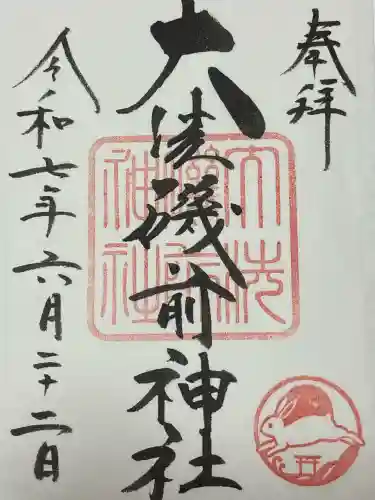 奉拝
大洗磯前神社
大洗磯前神社
令和七年六月二十二日